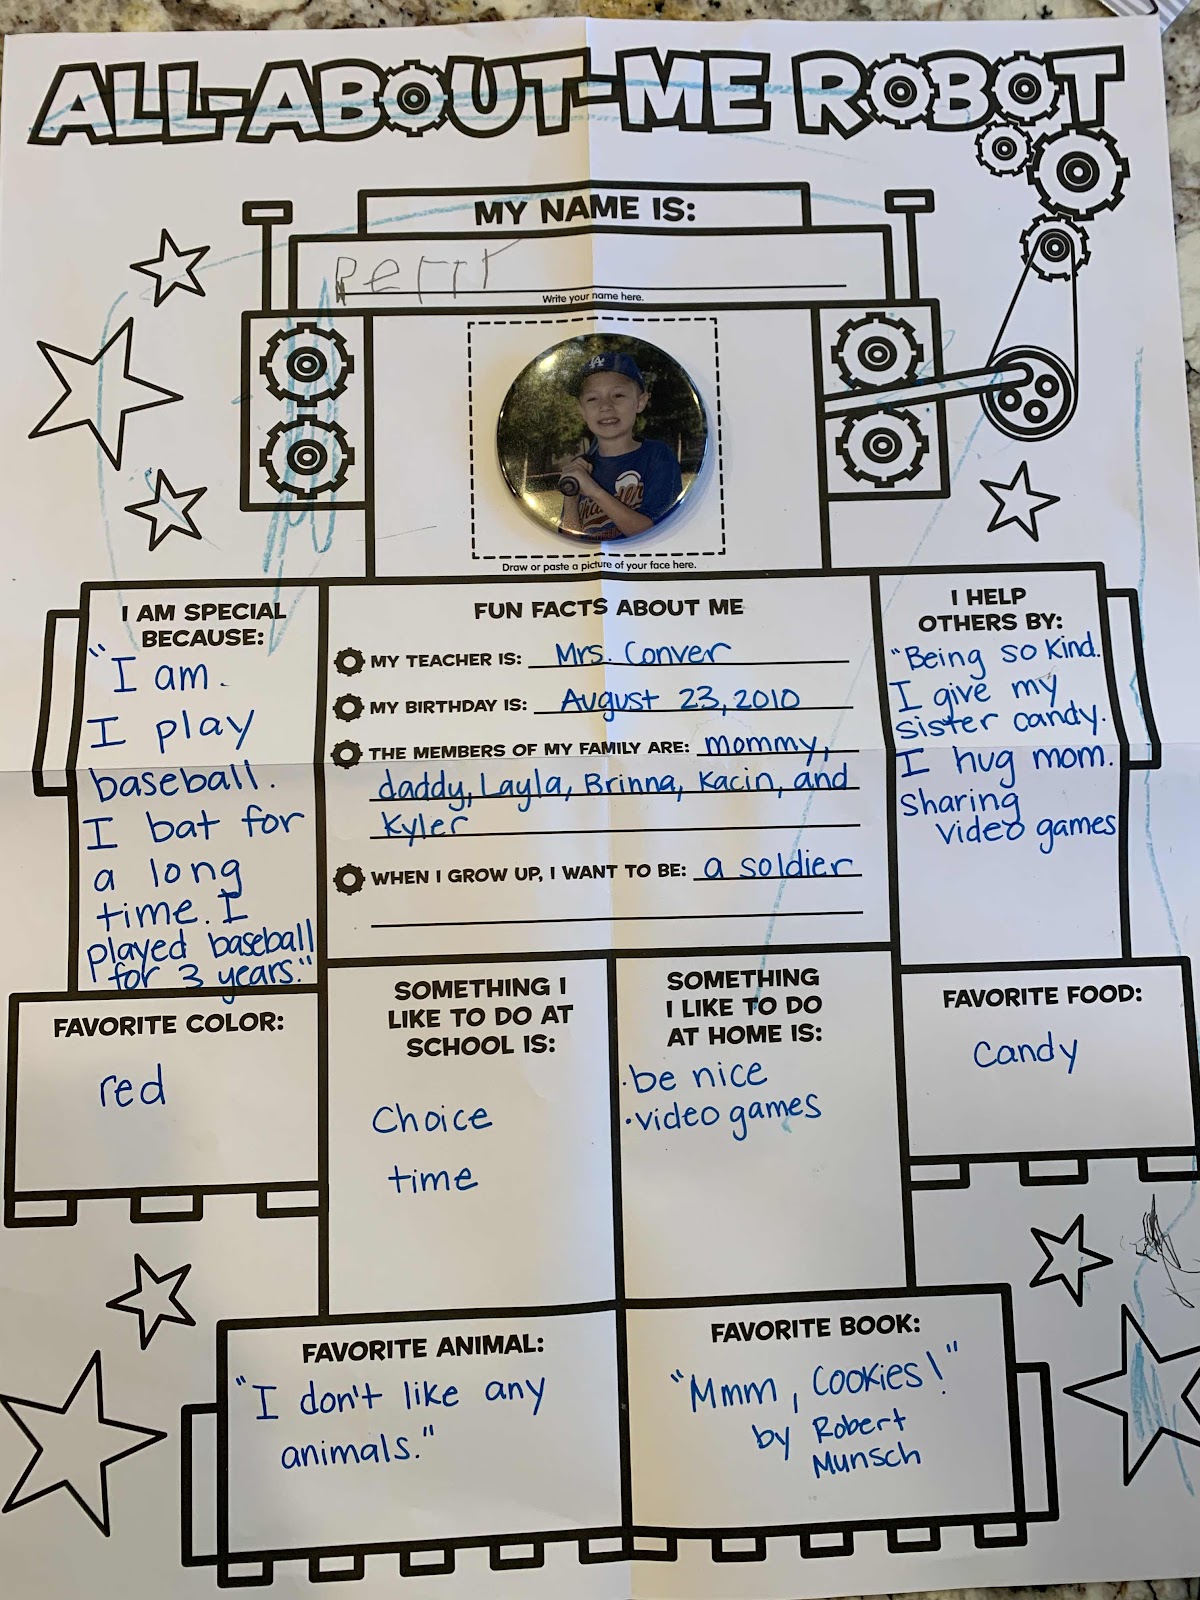 ALL-ABOUT-ME ROBOT
MY NAME IS:
Perrr
Write your name here.
LA
Draw or paste a picture of your face here.
I AM SPECIAL
BECAUSE:
"I am.
I play
baseball.
I bat for
a long
time. I
played baseball
for 3 years."
FUN FACTS ABOUT ME
MY TEACHER IS: Mrs. Conver
MY BIRTHDAY IS: August 23, 2010
THE MEMBERS OF MY FAMILY ARE: mommy,
daddy, Layla, Brinna, Kacin, and
Kyler
WHEN I GROW UP, I WANT TO BE: a soldier
I HELP
OTHERS BY:
"Being so kind.
I give my
sister candy.
I hug mom.
sharing
video games
FAVORITE COLOR:
red
SOMETHING I
LIKE TO DO AT
SCHOOL IS:
Choice
time
SOMETHING
I LIKE TO DO
AT HOME IS:
·be nice
·video games
FAVORITE FOOD:
candy
FAVORITE ANIMAL:
"I don't like any
animals."
FAVORITE BOOK:
"Mmm, Cookies!"
by Robert
Munsch